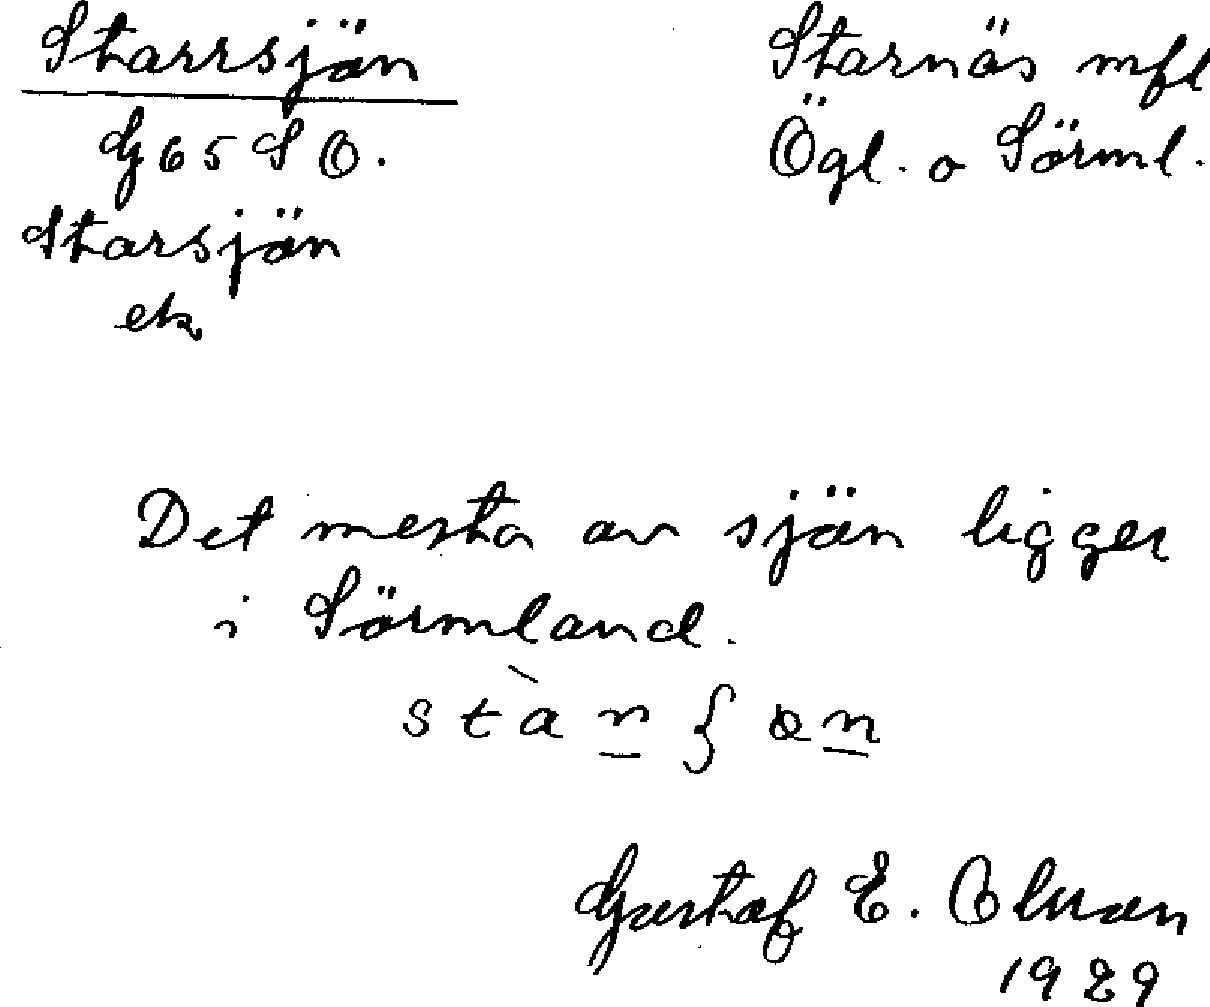 Starrsjön
Starnäs mfl
G 65 S O.
Ögl. o Sörml.
Starsjön
ek
Det mesta av sjön ligger
i Sörmland.
Gustaf E. Olsson
1929